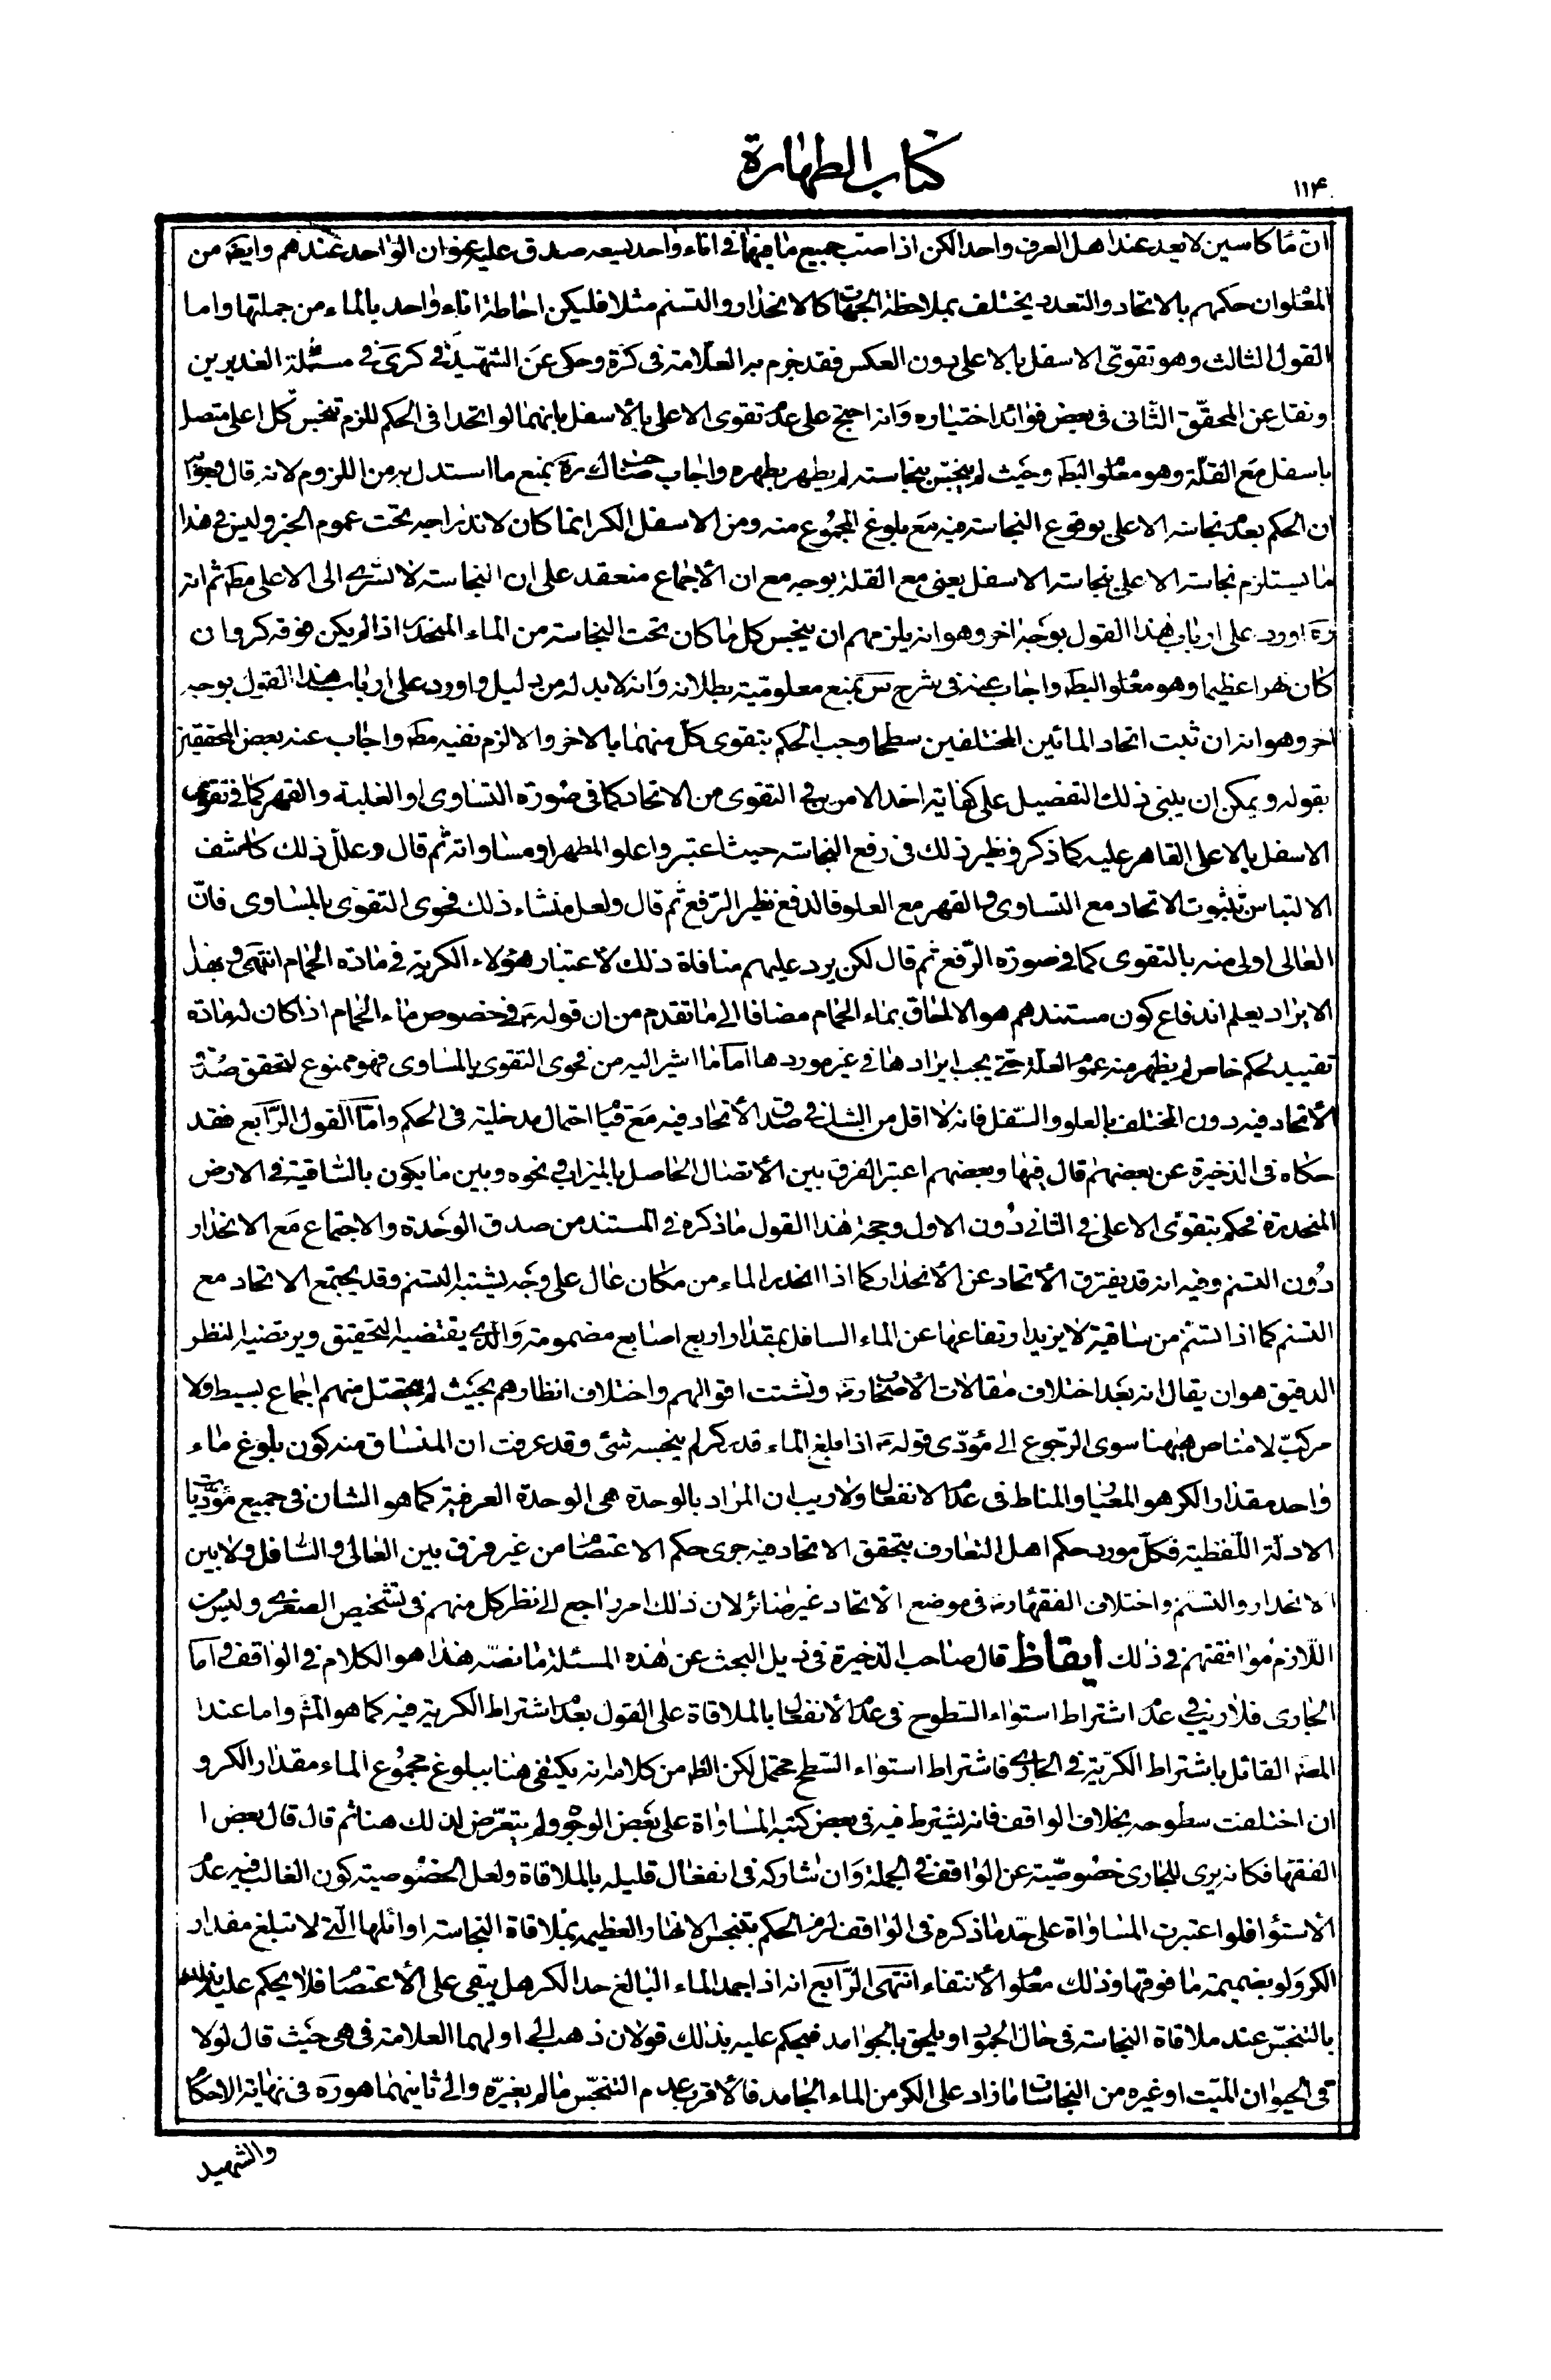 كتاب الطهارة
١١۴
ان ماء كاسين لا يعد عند اهل العرف واحدا لكن اذا صب جميع ما فيهما فى اناء واحد يسعه صدق عليه عنوان الواحد عندهم وايضا من
المعلوم ان حكمهم بالاتحاد والتعدد يختلف بملاحظة الجهات كالانحدار والتسنم مثلا فليكن احاطة اناء واحد بالماء من جملتها واما
القول الثالث وهو تقوّى الاسفل بالاعلى دون العكس فقد جزم به العلّامة فى كرة وحكى عن الشهيد فى كرى فى مسئلة الغديرين
ونقل عن المحقّق الثانى فى بعض فوائد اختياره وانه احتج على عدم تقوى الاعلى بالأسفل بانهما لو اتحدا فى الحكم للزم تنجس كل اعلى متصل
باسفل مع القلّة وهو معلوم البط وحيث لم ينجس بنجاسته لم يطهر بطهره واجاب صاحب لك ره بمنع ما استدل به من اللزوم لانه قال
ان الحكم بعدم نجاسة الاعلى بوقوع النجاسة فيه مع بلوغ المجموع منه ومن الاسفل الكر انما كان لاندراجه تحت عموم الخبر وليس فى هذا
ما يستلزم نجاسة الاعلى بنجاسة الاسفل يعنى مع القلة بوجه مع ان الأجماع منعقد على ان النجاسة لا تسرى الى الاعلى مط ثم انه
ره اورد على ارباب هذا القول بوجه اخر وهو انه يلزمهم ان ينجس كل ما كان تحت النجاسة من الماء المنحدر اذا لم يكن فوقه كر وان
كان نهرا عظيما وهو معلوم البط واجاب عنه فى شرح س بمنع معلوميّة بطلانه وانه لابد له من دليل واورد على ارباب هذا القول بوجه
اخر وهو انه ان ثبت اتحاد المائين المختلفين سطحا وجب الحكم بتقوى كل منهما بالاخر والا لزم نفيه مط واجاب عنه بعض المحققين
بقوله ويمكن ان يبنى ذلك التفصيل على كفاية احد الامرين فى التقوى من الاتحاد كما فى صورة التساوى او الغلبة والقهر كما فى تقوى
الاسفل بالاعلى القاهر عليه كما ذكر و نظير ذلك فى رفع النجاسة حيث اعتبروا علو المطهر او مساواته ثم قال وعلل ذلك كاشف
الالتباس بثبوت الاتحاد مع التساوى والقهر مع العلو فالدفع نظير الرفع ثم قال ولعل منشاء ذلك فحوى التقوى بالمساوى فانّ
العالى اولى منه بالتقوى كما فى صورة الرّفع ثم قال لكن يرد عليهم منافاة ذلك لاعتبار هؤلاء الكرية فى مادة الحمام انتهى وبهذا
الايراد يعلم اندفاع كون مستندهم هو الالحاق بماء الحمام مضافا الى ما تقدم من ان قوله ع فى خصوص ماء الحمام اذا كان له مادة
تقييد لحكم خاص لم يظهر منه عموم العلة حتى يجب ايرادها فى غير موردها اما ما اشير اليه من فحوى التقوى بالمساوى فهو ممنوع لتحقق صدق
الأتحاد فيه دون المختلف بالعلو والسّفل فانه لا اقل من الشك فى صدق الأتحاد فيه مع قيام احتمال مدخليته فى الحكم وامّا القول الرّابع فقد
حكاه فى الذخيرة عن بعضهم قال فيها وبعضهم اعتبر الفرق بين الأتصال الحاصل بالميزاب ونحوه وبين ما يكون بالساقية فى الارض
المنحدرة فحكم بتقوى الاعلى فى الثانى دون الاول وحجة هذا القول ما ذكره فى المستند من صدق الوحدة والاجتماع مع الانحدار
دون التسنم وفيه انه قد يفترق الأتحاد عن الأنحدار كما اذا انحدر الماء من مكان عال على وجه يشبه التسنم وقد يجتمع الاتحاد مع
التسنم كما اذا تسنّم من ساقية لا يزيد ارتفاعها عن الماء السافل بمقدار اربع اصابع مضمومة والّذى يقتضيه التحقيق ويرتضيه النظر
الدقيق هو ان يقال انه بعد اختلاف مقالات الأصحاب رض وتشتت اقوالهم واختلاف انظارهم بحيث لم يحصل منهم اجماع بسيط ولا
مركبّ لا مناص هيهنا سوى الرّجوع الى مؤدّى قوله ع اذا بلغ الماء قدر كر لم ينجسه شئ وقد عرفت ان المنساق منه كون بلوغ ماء
واحد مقدار الكر هو المعيار والمناط فى عدم الانفعال ولا ريب ان المراد بالوحدة هى الوحدة العرفية كما هو الشان فى جميع مؤدّيات
الادلّة اللّفظية فكلّ مورد حكم اهل التعارف بتحقق الاتحاد فيه جرى حكم الاعتصام من غير فرق بين العالى والسافل ولا بين
الانحدار والتسنم واختلاف الفقهاء رض فى موضع الاتحاد غير ضائر لان ذلك امر راجع الى نظر كل منهم فى تشخيص الصغرى وليس من
اللّازم موافقتهم فى ذلك ايقاظ قال صاحب الذخيرة فى ذيل البحث عن هذه المسئلة ما نصّه هذا هو الكلام فى الواقف واما
الجارى فلا ريب فى عدم اشتراط استواء السّطوح فى عدم الأنفعال بالملاقاة على القول بعدم اشتراط الكرية فيه كما هو المشهور واما عند
المص القائل باشتراط الكريّة فى الجارى فاشتراط استواء السّطح محتمل لكن الظ من كلامه انه يكتفى هنا ببلوغ مجموع الماء مقدار الكر و
ان اختلفت سطوحه بخلاف الواقف فانه يشترط فيه فى بعض كتبه المساواة على بعض الوجوه ولم يتعّرض لذلك هنا ثم قال قال بعض ا
الفقها فكانه يرى للجارى خصوصّية عن الواقف فى الجملة وان شاركه فى انفعال قليله بالملاقاة ولعل الخصوصية كون الغالب فيه عدم
الأستواء فلو اعتبرت المساواة على حّد ما ذكره فى الواقف لزم الحكم بتنجس الانهار العظيمة بملاقاة النجاسة اوائلها الّتى لا تبلغ مقدار
الكر ولو بضميمة ما فوقها وذلك معلوم الأنتفاء انتهى الرّابع انه اذا جمد الماء البالغ حد الكر هل يبقى على الأعتصام فلا يحكم عليه
بالتنجّس عند ملاقاة النجاسة فى حال الجمود او يلحق بالجوامد فيحكم عليه بذلك قولان ذهب الى اولهما العلامة فى هى حيث قال لو لا
قى الحيوان الميّت او غيره من النجاسات ما زاد على الكر من الماء الجامد فالأقرب عدم التنجّس ما لم يغيّره والى ثانيهما هو ره فى نهاية الاحكام
والشهيد